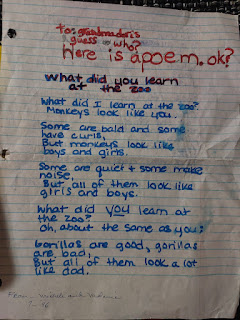 to: grandma doris
guess who?
Here is a poem. ok?
What did you learn
at the zoo
What did I learn at the zoo?
Monkeys look like you.
Some are bald and some
have curls,
But monkeys look like
boys and girls.
Some are quiet + some make
noise,
But all of them look like
girls and boys.
What did you learn at
the zoo?
Oh, about the same as you:
Gorillas are good, gorillas
are bad,
But all of them look a lot
like dad.
From